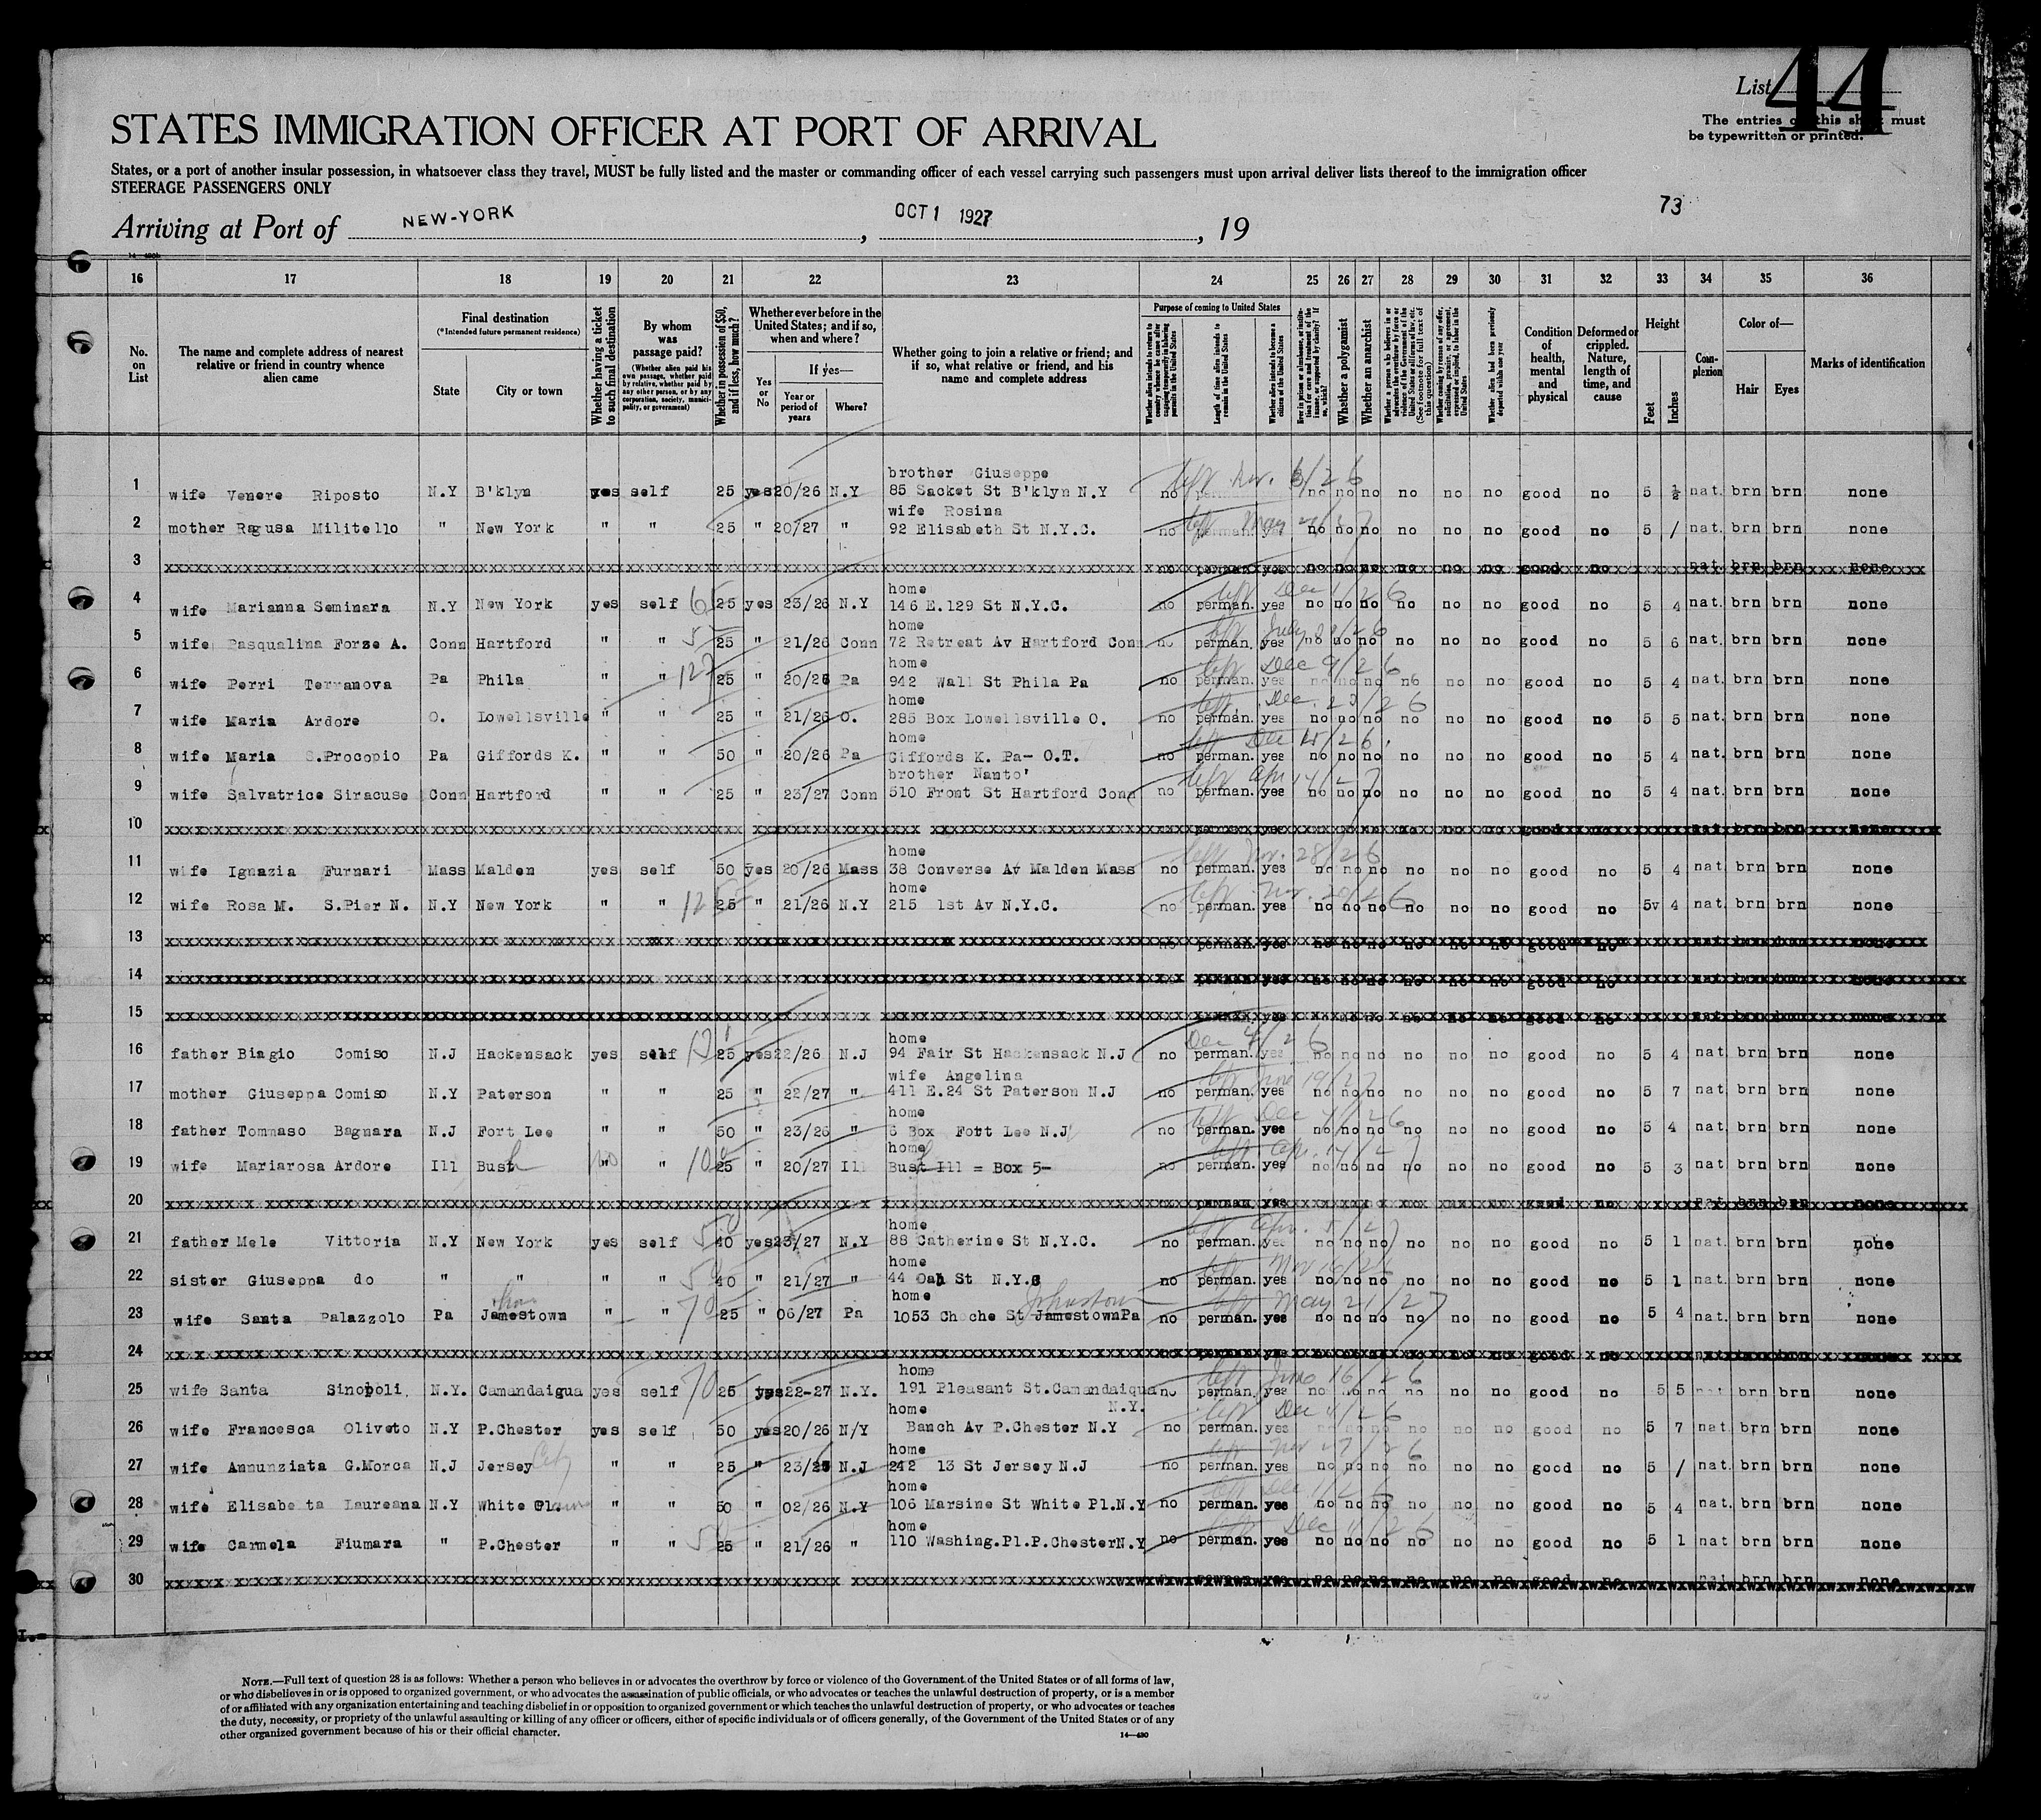 List 44
The entries on this sheet must
be typewritten or printed.
STATES IMMIGRATION OFFICER AT PORT OF ARRIVAL
States, or a port of another insular possession, in whatsoever class they travel, MUST be fully listed and the master or commanding officer of each vessel carrying such passengers must upon arrival deliver lists thereof to the immigration officer
STEERAGE PASSENGERS ONLY
73
Arriving at Port of NEW-YORK, OCT 1 1927, 19
16 17 18 19 20 21 22 23 24 25 26 27 28 29 30 31 32 33 34 35 36
No. on List
The name and complete address of nearest relative or friend in country whence alien came
Final destination
(*Intended future permanent residence)
State
City or town
Whether having a ticket to such final destination
By whom was passage paid?
(Whether alien paid his own passage, whether paid by relative, whether paid by any other person, or by any corporation, society, municipality, or government)
Whether in possession of $50, and if less, how much?
Whether ever before in the United States; and if so, when and where?
Yes or No
If yes—
Year or period of years
Where?
Whether going to join a relative or friend; and if so, what relative or friend, and his name and complete address
Purpose of coming to United States
Length of time alien intends to remain in the United States
Whether alien intends to become a citizen of the United States
Whether a polygamist
Whether an anarchist
Condition of health, mental and physical
Deformed or crippled. Nature, length of time, and cause
Height
Feet
Inches
Complexion
Color of—
Hair
Eyes
Marks of identification
brother Giuseppe
1 wife Venere Riposto N.Y B'klyn yes self 25 yes 20/26 N.Y 85 Sacket St B'klyn N.Y no no no no no no no good no 5 ½ nat. brn brn none
wife Rosina
2 mother Ragusa Militello " New York " " 25 " 20/27 " 92 Elisabeth St N.Y.C. no perman. yes no no no no no no good no 5 / nat. brn brn none
3 no perman yes no no no no no no good no nat. brn brn none
home
4 wife Marianna Seminara N.Y New York yes self 25 yes 23/26 N.Y 146 E.129 St N.Y.C. no perman. yes no no no no no no good no 5 4 nat. brn brn none
home
5 wife Pasqualina Forze A. Conn Hartford " " 25 " 21/26 Conn 72 Retreat Av Hartford Conn no perman. yes no no no no no no good no 5 6 nat. brn brn none
home
6 wife Perri Terranova Pa Phila " " 127 25 " 20/26 Pa 942 Wall St Phila Pa no perman. yes no no no no no no good no 5 4 nat. brn brn none
home
7 wife Maria Ardore O. Lowellsville " " 25 " 21/26 O. 285 Box Lowellsville O. no perman. yes no no no no no no good no 5 5 nat. brn brn none
home
8 wife Maria S.Procopio Pa Giffords K. " " 50 " 20/26 Pa Giffords K. Pa- O.T. no perman. yes no no no no no no good no 5 4 nat. brn brn none
brother Nanto'
9 wife Salvatrice Siracuse Conn Hartford " " 25 " 23/27 Conn 510 Front St Hartford Conn no perman. yes no no no no no no good no 5 4 nat. brn brn none
10
home
11 wife Ignazia Furnari Mass Malden yes self 50 yes 20/26 Mass 38 Converse Av Malden Mass no perman. yes no no no no no no good no 5 4 nat. brn brn none
home
12 wife Rosa M. S.Pier N. N.Y New York " " 25 " 21/26 N.Y 215 1st Av N.Y.C. no perman. yes no no no no no no good no 5v 4 nat. brn brn none
13
14
15
home
16 father Biagio Comiso N.J Hackensack yes self 25 yes 22/26 N.J 94 Fair St Hackensack N.J no perman. yes no no no no no no good no 5 4 nat. brn brn none
wife Angelina
17 mother Giuseppa Comiso N.Y Paterson " " 25 " 22/27 " 411 E.24 St Paterson N.J no perman. yes no no no no no no good no 5 7 nat. brn brn none
home
18 father Tommaso Bagnara N.J Fort Lee " " 50 " 23/26 " 6 Box Fort Lee N.J no perman. yes no no no no no no good no 5 4 nat. brn brn none
home
19 wife Mariarosa Ardore Ill Bush no " 100 25 " 20/27 Ill Bush Ill = Box 5- no perman. yes no no no no no no good no 5 3 nat. brn brn none
20
home
21 father Mele Vittoria N.Y New York yes self 50 40 yes 23/27 N.Y 88 Catherine St N.Y.C. no perman. yes no no no no no no good no 5 1 nat. brn brn none
home
22 sister Giuseppa do " " " " 50 40 " 21/27 " 44 Oak St N.Y.C no perman. yes no no no no no no good no 5 1 nat. brn brn none
home Johnstown
23 wife Santa Palazzolo Pa Jamestown " " 70 25 " 06/27 Pa 1053 Choche St JamestownPa no perman. yes no no no no no no good no 5 4 nat. brn brn none
24
home
25 wife Santa Sinopoli N.Y. Camandaigua yes self 70 25 yes 22-27 N.Y. 191 Pleasant St.Camandaiqua N.Y. no perman. yes no no no no no no good no 5 5 nat brn brn none
home
26 wife Francesca Oliveto N.Y P.Chester yes self 50 yes 20/26 N/Y Banch Av P.Chester N.Y no perman. yes no no no no no no good no 5 7 nat. brn brn none
home
27 wife Annunziata G.Morca N.J Jersey City " " 25 " 23/26 N.J 242 13 St Jersey N.J no perman. yes no no no no no no good no 5 / nat. brn brn none
home
28 wife Elisabetta Laureana N.Y White Pl. " " 50 " 02/26 N.Y 106 Marsine St White Pl.N.Y no perman. yes no no no no no no good no 5 4 nat. brn brn none
home
29 wife Carmela Fiumara " P.Chester " " 50 25 " 21/26 " 110 Washing.Pl.P.ChesterN.Y no perman. yes no no no no no no good no 5 1 nat brn brn none
30
NOTE.—Full text of question 28 is as follows: Whether a person who believes in or advocates the overthrow by force or violence of the Government of the United States or of all forms of law,
or who disbelieves in or is opposed to organized government, or who advocates the assassination of public officials, or who advocates or teaches the unlawful destruction of property, or is a member
of or affiliated with any organization entertaining and teaching disbelief in or opposition to organized government or which teaches the unlawful destruction of property, or who advocates or teaches
the duty, necessity, or propriety of the unlawful assaulting or killing of any officer or officers, either of specific individuals or of officers generally, of the Government of the United States or of any
other organized government because of his or their official character.
14—430